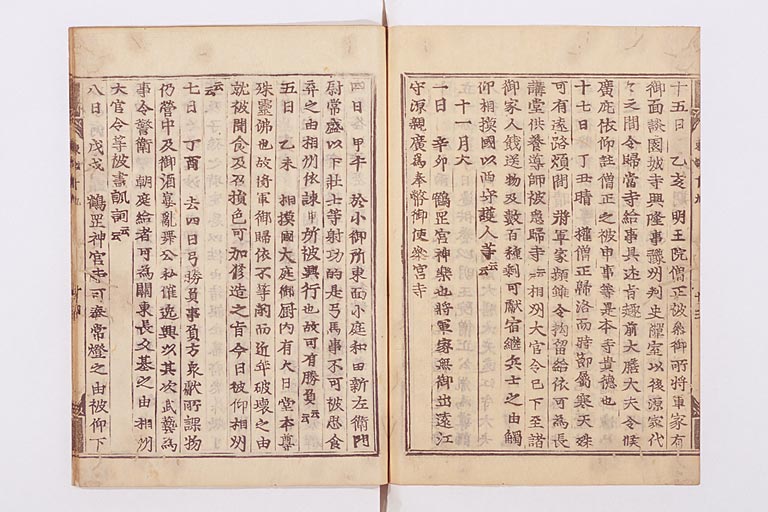 十五日 乙亥 明王院僧正被參御所將軍家有
御面談園城寺興隆事豫州刺史禪室以後源家代
々之間令歸當寺給事具述旨趣前大膳大夫令候
廣庇依仰註僧正之被申事等是本寺貴徳也
十七日 丁丑晴 權僧正歸洛而時節属寒天殊
可有遠路煩間 將軍家頻雖令拘留給依可為長
講堂供養導師被怱歸等云云相州大官令已下至諸
御家人餞送物及數百種剩可獻宿継兵士之由觸
仰相摸國以西守護人等云云
十一月大
一日 辛卯 鶴罡宮神樂也將軍家無御出遠江
守源親廣為奉幣御使參宮寺
四日 甲午 於小御所東面小庭和田新左衛門
尉常盛以下壮士等射切的是弓馬事不可被思食
弃之由相州依諫申所被興行也故可有勝負云云
五日 乙未 相摸國大庭御厨内有大日堂本尊
殊靈佛也故將軍御歸依不等閑而近年破壞之由
就被聞食及召損色可加修造之旨今日被仰相州
云云
七日 丁酉 去四日弓勝負事負方衆獻所課物
仍營中及御酒宴乱舞公私催逸興以其次武藝為
事令警衛 朝庭給者可為關東長久基之由相州
大官令等被盡諷詞云云
八日 戊戌 鶴罡神宮寺可奉常燈之由被仰下